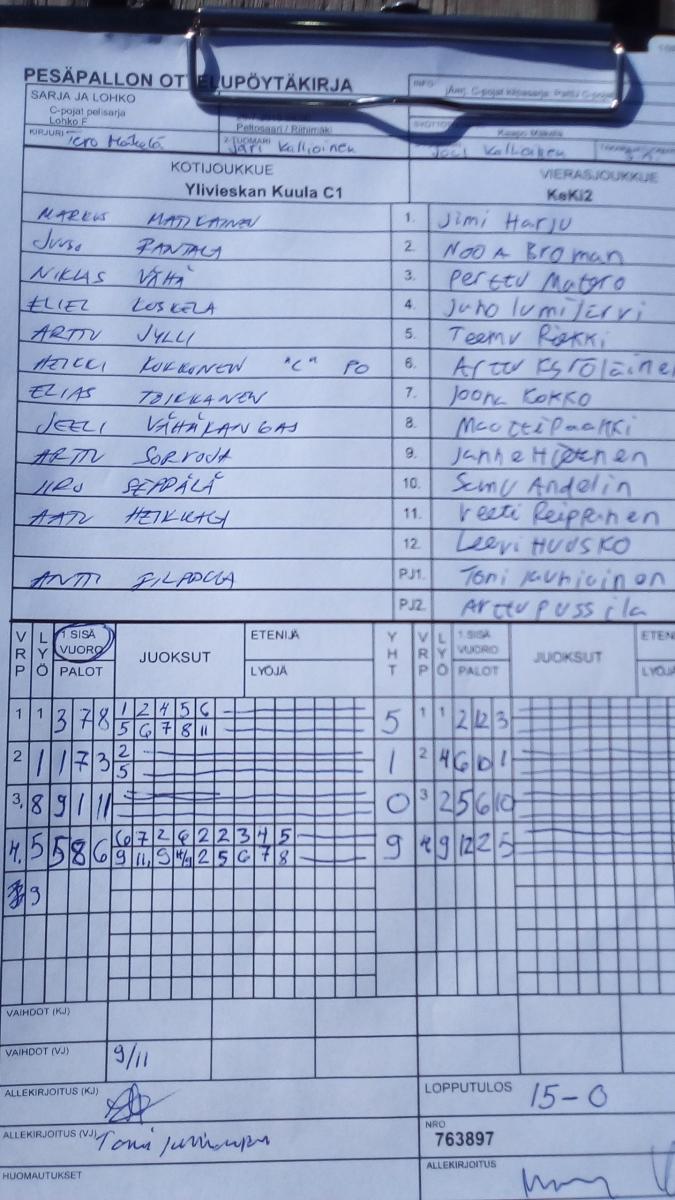 PESÄPALLON OTTELUPÖYTÄKIRJA
INFO
SARJA JA LOHKO
C-pojat pelisarja
Lohko F
Peltosaari / Riihimäki
KIRJURI Tero Mäkelä
2-TUOMARI Jari Kallioinen
Joel Kallioinen
KOTIJOUKKUE
VIERASJOUKKUE
Ylivieskan Kuula C1
KeKi2
MARKUS MATIKAINEN 1. Jimi Harju
JUUSO RANTALA 2. Nooa Broman
NIKLAS VÄHÄ 3. Perttu
ELIEL KOSKELA 4. Juho lumijärvi
ARTTU JYLLI 5. Teemu
HEIKKI KUKKONEN "C" PO 6. Arttu
ELIAS TOIKKANEN 7. Joona KOKKO
JEELI VÄHÄKANGAS 8.
ARTTU 9. Janne
URO SEPPÄLÄ 10. Samu Andelin
AATU HEIKKALA 11. Veeti
12. Leevi HUUSKO
ANTTI PJ1. Toni
PJ2. Arttu pussila
VRP LYÖ 1.SISÄ VUORO PALOT JUOKSUT ETENIJÄ LYÖJÄ YHT VRP LYÖ 1.SISÄ VUORO PALOT JUOKSUT
1 1 3 7 8 1 2 4 5 6 5 1 1 2 12 3
5 6 7 8 11
2 1 1 7 3 2 1 2 4 6 10 1
5
3. 8 9 1 11 0 3 2 5 6 10
4. 5 5 8 6 6 7 2 6 2 2 3 4 5 9 4 9 12 2 5
9 11 9 2 5 6 7 8
9
VAIHDOT (KJ)
VAIHDOT (VJ) 9/11
ALLEKIRJOITUS (KJ)
LOPPUTULOS 15-0
ALLEKIRJOITUS (VJ) Toni
NRO
763897
HUOMAUTUKSET
ALLEKIRJOITUS